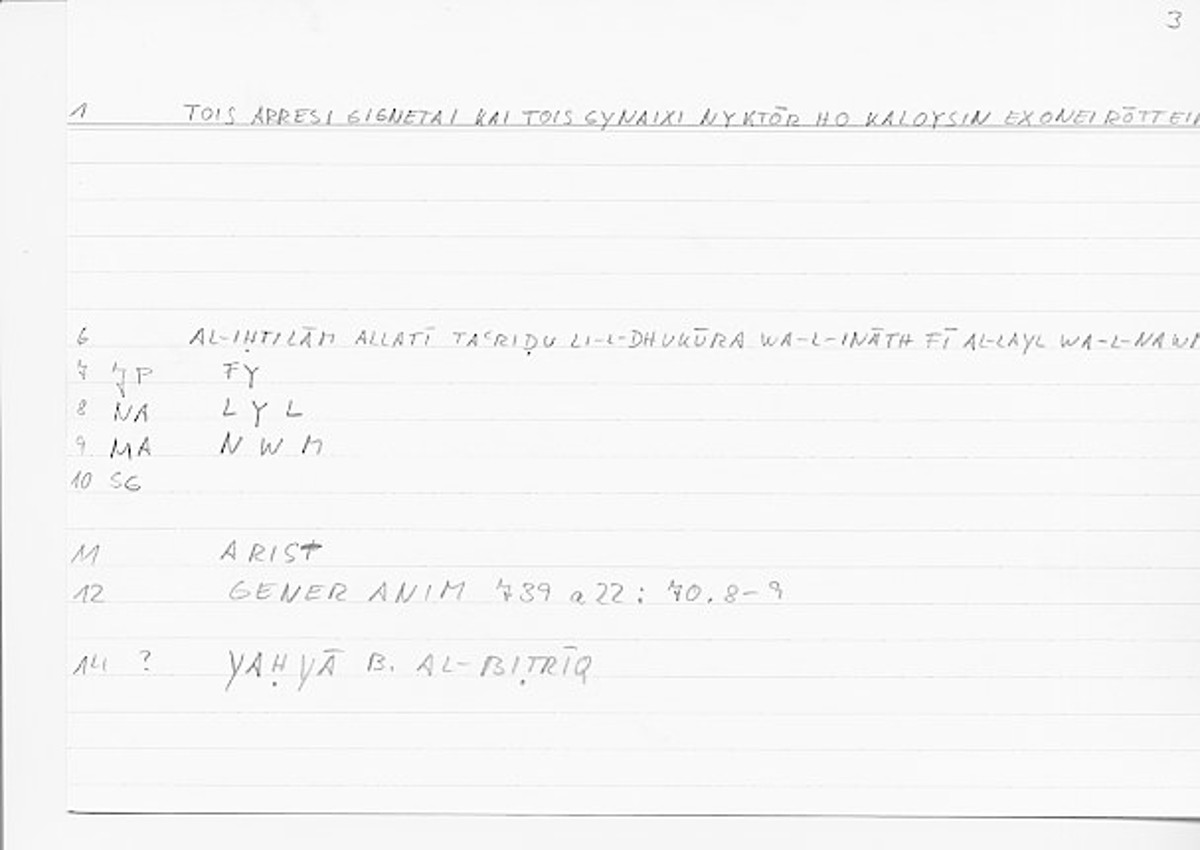 3
1 TOIS ARRESI GIGNETAI KAI TOIS GYNAIXI NYKTŌR HO KALOYSIN EXONEIRŌTTEIN
6 AL-IḤTILĀM ALLATĪ TAʿRIḌU LI-L-DHUKŪRA WA-L-INĀTH FĪ AL-LAYL WA-L-NAWM
7 JP FY
8 NA LYL
9 MA NWM
10 SG
11 ARIST
12 GENER ANIM 739 a 22 : 70.8-9
14 ? YAḤYĀ B. AL-BIṬRĪQ